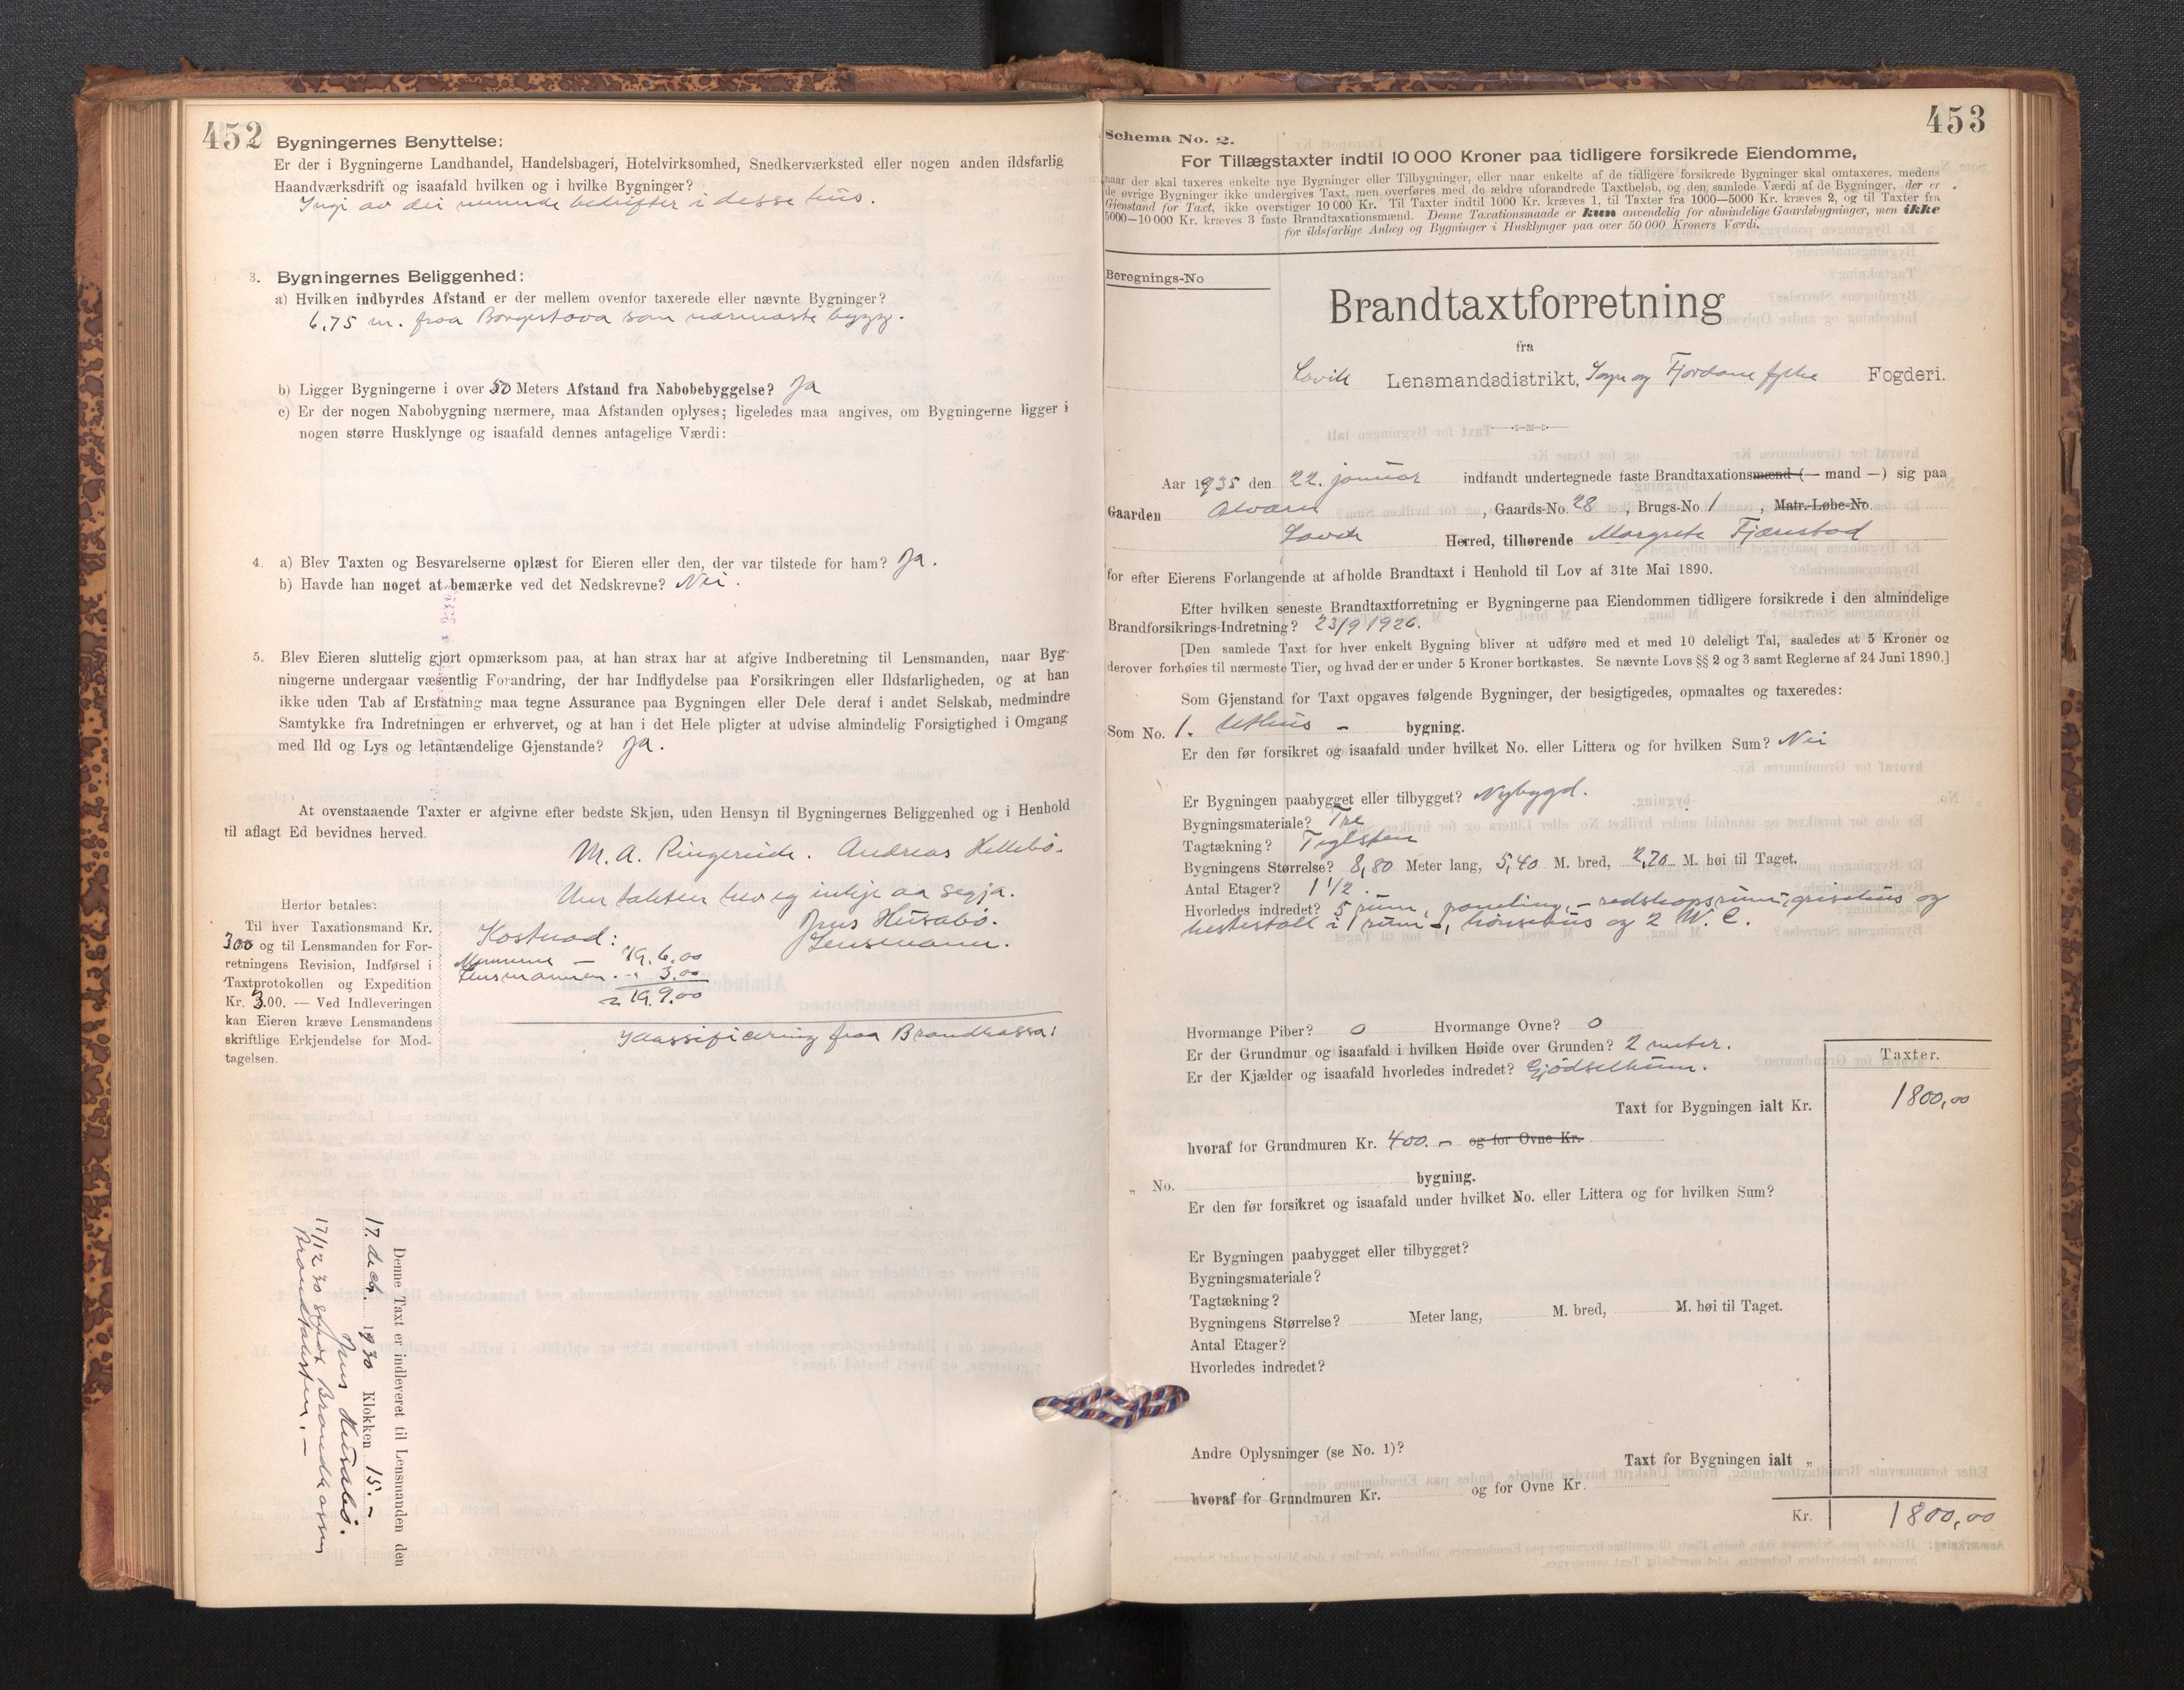 452
Bygningernes Benyttelse:
Er der i Bygningerne Landhandel, Handelsbageri, Hotelvirksomhed, Snedkerværksted eller nogen anden ildsfarlig
Haandværksdrift og isaafald hvilken og i hvilke Bygninger?
Ingi av dei nemnde bedrifter i desse hus.
3. Bygningernes Beliggenhed:
a) Hvilken indbyrdes Afstand er der mellem ovenfor taxerede eller nævnte Bygninger?
6,75 m. fraa Borgestova som nærmaste bygg.
b) Ligger Bygningerne i over 50 Meters Afstand fra Nabobebyggelse? Ja
c) Er der nogen Nabobygning nærmere, maa Afstanden oplyses; ligeledes maa angives, om Bygningerne ligger i
nogen større Husklynge og isaafald dennes antagelige Værdi:
4. a) Blev Taxten og Besvarelserne oplæst for Eieren eller den, der var tilstede for ham? Ja.
b) Havde han noget at bemærke ved det Nedskrevne? Nei.
5. Blev Eieren sluttelig gjort opmærksom paa, at han strax har at afgive Indberetning til Lensmanden, naar Byg-
ningerne undergaar væsentlig Forandring, der har Indflydelse paa Forsikringen eller Ildsfarligheden, og at han
ikke uden Tab af Erstatning maa tegne Assurance paa Bygningen eller Dele deraf i andet Selskab, medmindre
Samtykke fra Indretningen er erhvervet, og at han i det Hele pligter at udvise almindelig Forsigtighed i Omgang
med Ild og Lys og letantændelige Gjenstande? Ja.
At ovenstaaende Taxter er afgivne efter bedste Skjøn, uden Hensyn til Bygningernes Beliggenhed og i Henhold
til aflagt Ed bevidnes herved.
M. A. Ringereide. Andreas Hellebö.
Um taksten hev eg inkje aa segja.
Jens Husabö.
Lensmann.
Herfor betales:
Til hver Taxationsmand Kr.
3.00 og til Lensmanden for For-
retningens Revision, Indførsel i
Taxtprotokollen og Expedition
Kr. 3.00. — Ved Indleveringen
kan Eieren kræve Lensmandens
skriftlige Erkjendelse for Mod-
tagelsen.
Kostnad:
Mennene — Kr. 6.00
Lensmannen - " 3.00
Kr. 9.00
Klassificering fraa Brandkassa:
Denne Taxt er indleveret til Lensmanden den
17. decbr. 1930 Klokken 15.-
Jens Husabö.
17/12 30 sendt Brandkassen
Brandtaksten. -
453
Schema No. 2.
For Tillægstaxter indtil 10 000 Kroner paa tidligere forsikrede Eiendomme,
naar der skal taxeres enkelte nye Bygninger eller Tilbygninger, eller naar enkelte af de tidligere forsikrede Bygninger skal omtaxeres, medens
de øvrige Bygninger ikke undergives Taxt, men overføres med de ældre uforandrede Taxtbeløb, og den samlede Værdi af de Bygninger, der er
Gjenstand for Taxt, ikke overstiger 10 000 Kr. Til Taxter indtil 1000 Kr. kræves 1, til Taxter fra 1000—5000 Kr. kræves 2, og til Taxter fra
5000—10 000 Kr. kræves 3 faste Brandtaxationsmænd. Denne Taxationsmaade er kun anvendelig for almindelige Gaardsbygninger, men ikke
for ildsfarlige Anlæg og Bygninger i Husklynger paa over 50 000 Kroners Værdi.
Beregnings-No
Brandtaxtforretning
fra
Lavik Lensmandsdistrikt, Sogn og Fjordane fylke Fogderi.
Aar 1935 den 22. januar indfandt undertegnede faste Brandtaxationsmænd (— mand —) sig paa
Gaarden Alværn, Gaards-No. 28, Brugs-No 1, Matr.-Løbe-No.
Lavik Herred, tilhørende Margrete Fjærestad
for efter Eierens Forlangende at afholde Brandtaxt i Henhold til Lov af 31te Mai 1890.
Efter hvilken seneste Brandtaxtforretning er Bygningerne paa Eiendommen tidligere forsikrede i den almindelige
Brandforsikrings-Indretning? 23/9 1926.
[Den samlede Taxt for hver enkelt Bygning bliver at udføre med et med 10 deleligt Tal, saaledes at 5 Kroner og
derover forhøies til nærmeste Tier, og hvad der er under 5 Kroner bortkastes. Se nævnte Lovs §§ 2 og 3 samt Reglerne af 24 Juni 1890.]
Som Gjenstand for Taxt opgaves følgende Bygninger, der besigtigedes, opmaaltes og taxeredes:
Som No. 1. Uthus - bygning.
Er den før forsikret og isaafald under hvilket No. eller Littera og for hvilken Sum? Nei
Er Bygningen paabygget eller tilbygget? Nybygd.
Bygningsmateriale? Tre
Tagtækning? Teglsten
Bygningens Størrelse? 8,80 Meter lang, 5,40 M. bred, 2,70 M. høi til Taget.
Antal Etager? 1 1/2.
Hvorledes indredet? 5 rum, paneling, - redskapsrum, grisehus og
hestestall i 1 rum -, hönsehus og 2 W. C.
Hvormange Piber? 0 Hvormange Ovne? 0
Er der Grundmur og isaafald i hvilken Høide over Grunden? 2 meter.
Er der Kjælder og isaafald hvorledes indredet? Gjödselkum.
Taxter.
Taxt for Bygningen ialt Kr. 1800,00
hvoraf for Grundmuren Kr. 400.- og for Ovne Kr.
„ No. bygning.
Er den før forsikret og isaafald under hvilket No. eller Littera og for hvilken Sum?
Er Bygningen paabygget eller tilbygget?
Bygningsmateriale?
Tagtækning?
Bygningens Størrelse? Meter lang, M. bred, M. høi til Taget.
Antal Etager?
Hvorledes indredet?
Andre Oplysninger (se No. 1)?
Taxt for Bygningen ialt „
hvoraf for Grundmuren Kr. og for Ovne Kr.
Kr. 1800,00